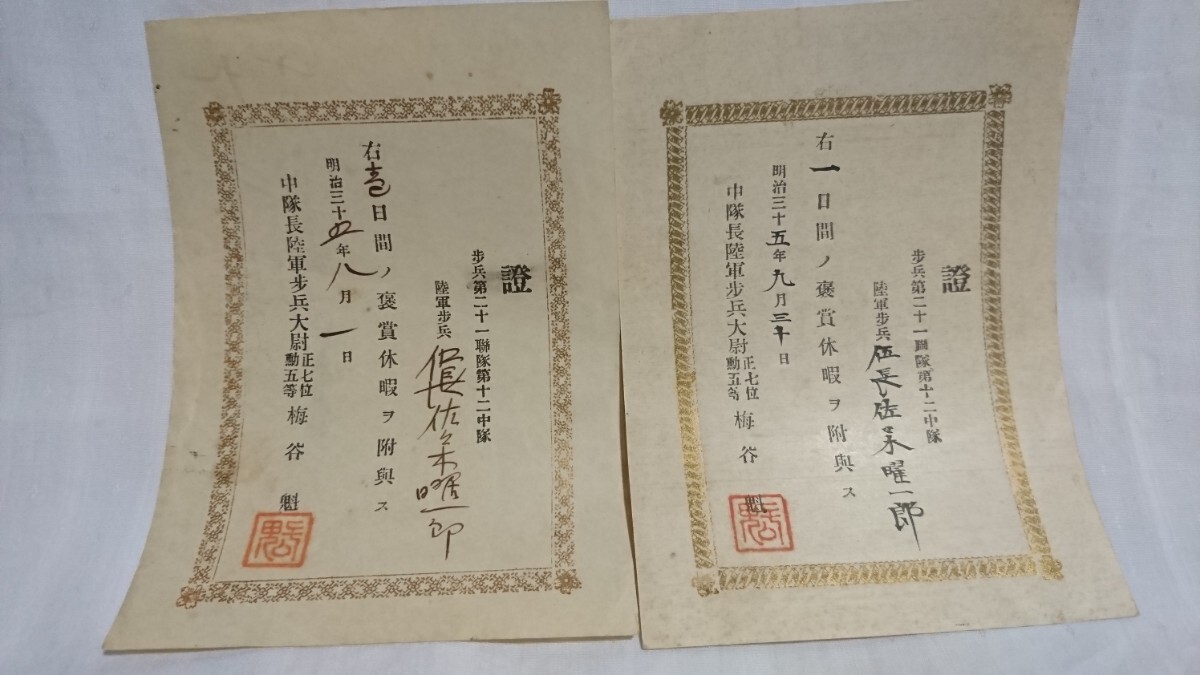 證
歩兵第二十一聯隊第十二中隊
陸軍歩兵伍長佐々木曜一郎
右一日間ノ褒賞休暇ヲ附與ス
明治三十五年九月三十日
中隊長陸軍歩兵大尉正七位勳五等梅谷魁
證
歩兵第二十一聯隊第十二中隊
陸軍歩兵伍長佐々木曜一郎
右壱日間ノ褒賞休暇ヲ附與ス
明治三十五年八月一日
中隊長陸軍歩兵大尉正七位勳五等梅谷魁